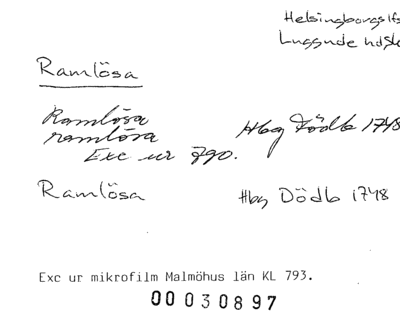 Helsingborgs lfs
Luggude hdsk
Ramlösa
Ramlösa
ramlösa Hbg Dödb 1748
Exc ur 790.
Ramlösa Hbg Dödb 1748
Exc ur mikrofilm Malmöhus län KL 793.
00 030897